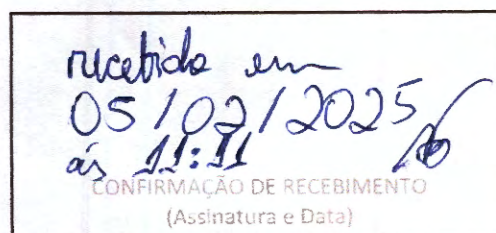 recebido em
05/02/2025
às 11:11
CONFIRMAÇÃO DE RECEBIMENTO
(Assinatura e Data)